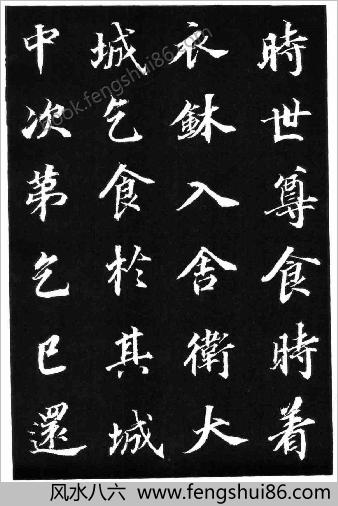 時世尊食時着
衣鉢入舍衛大
城乞食於其城
中次第乞已還
book.fengshui86.com
风水八六 www.fengshui86.com